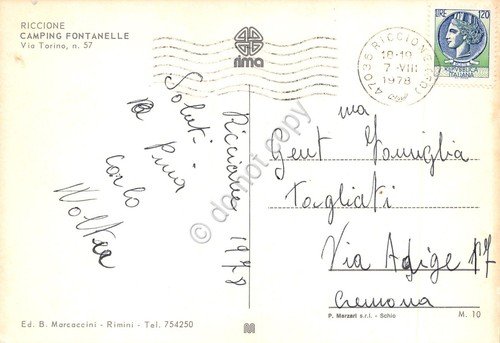 RICCIONE
CAMPING FONTANELLE
Via Torino, n. 57
rima
47036 RICCIONE (FO)
18-19
7-VIII
1978
LIRE 120
Riccione 1978
Saluti
da Pina
Carlo
Gent.ma Famiglia
Tagliati
Via Adige 17
Cremona
do not copy
Ed. B. Marcaccini - Rimini - Tel. 754250
M
P. Marzari s.r.l. - Schio
M. 10